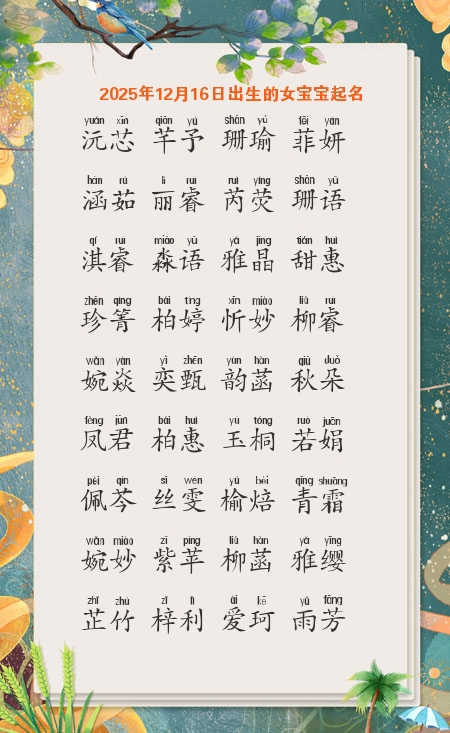 2025年12月16日出生的女宝宝起名
yuán xīn qiān yú shān yú fēi yán
沅芯 芊予 珊瑜 菲妍
hán rú lì ruì ruì yíng shān yǔ
涵茹 丽睿 芮荧 珊语
qí ruì miǎo yǔ yǎ jīng tián huì
淇睿 淼语 雅晶 甜惠
zhēn qìng bǎi tíng xīn miào liǔ ruì
珍箐 柏婷 忻妙 柳睿
wǎn yàn yì zhēn yùn hàn qiū duǒ
婉焱 奕甄 韵菡 秋朵
fèng jūn bǎi huì yù tóng ruò juān
凤君 柏惠 玉桐 若娟
pèi qín sī wén yú bèi qīng shuāng
佩芩 丝雯 榆焙 青霜
wǎn miào zǐ píng liǔ hàn yǎ yīng
婉妙 紫苹 柳菡 雅缨
zhǐ zhú zǐ lì ài kē yǔ fāng
芷竹 梓利 爱珂 雨芳